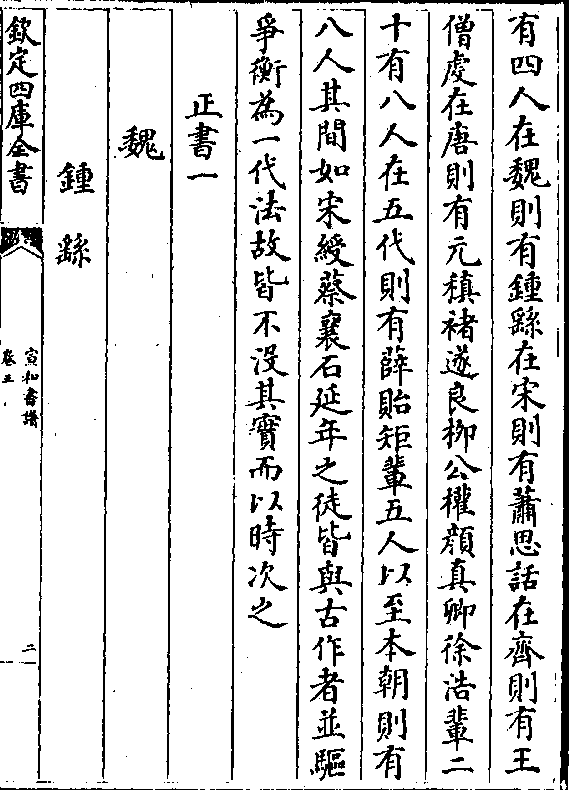 有四人在魏則有鍾繇在宋則有蕭思話在齊則有王
僧虔在唐則有元稹褚遂良柳公權顔真卿徐浩輩二
十有八人在五代則有薛貽矩輩五人以至本朝則有
八人其間如宋綬蔡襄石延年之徒皆與古作者並驅
爭衡為一代法故皆不没其實而以時次之
正書一
魏
鍾繇
欽定四庫全書
宣和書譜
卷三
二